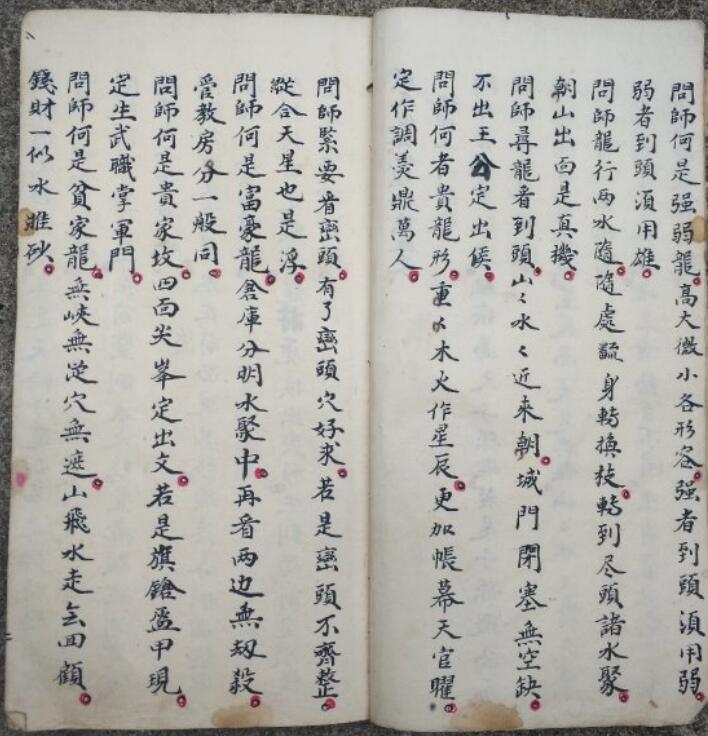 問師何是强弱龍高大微小各形容强者到頭須用弱
弱者到頭須用雄
問師龍行两水隨隨處翻身轉换枝轉到尽頭諸水聚
朝山出面是真機
問師尋龍看到頭山〻水〻近來朝城門閉塞無空缺
不出王公定出侯
問師何者貴龍形重〻木火作星辰更加帳幕天官曜
定作調羡鼎萬人
問師緊要看巒頭有了巒頭穴好求若是巒頭不齊整
縱合天星也是浮
問師何是富豪龍倉庫分明水聚中再看两边無刼殺
管教房分一般同
問師何是貴家坟四面尖峯定出文若是旗鎗盔甲現
定生武職掌軍門
問師何是貧家龍無峽無從穴無遮山飛水走去回顧
錢財一似水推砂